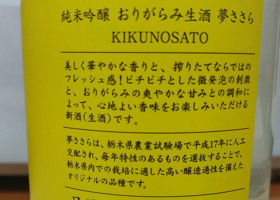 純米吟醸 おりがらみ生酒 夢ささら
KIKUNOSATO
美しく華やかな香りと、搾りたてならではの
フレッシュ感!ピチピチとした微発泡の刺激
と、おりがらみの爽やかな甘みとの調和に
よって、心地よい香味をお楽しみいただける
新酒(生酒)です。
夢ささらは、栃木県農業試験場で平成17年に人工
交配され、毎年特性のあるものを選抜することで、
栃木県内での栽培に適した高い醸造適性を備えた
オリジナルの品種です。